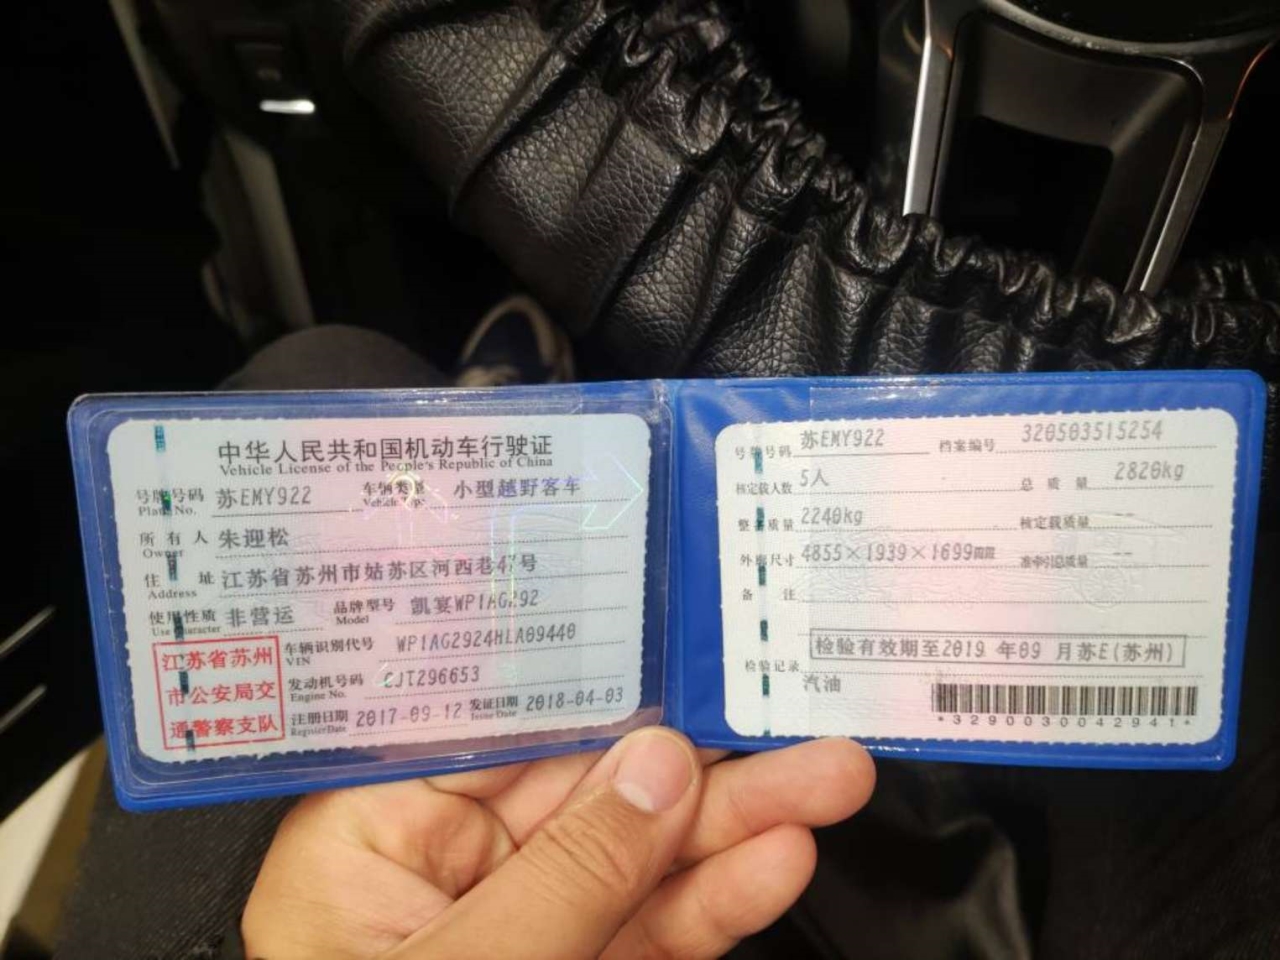 中华人民共和国机动车行驶证
Vehicle License of the People's Republic of China
号牌号码 苏EMY922 车辆类型 小型越野客车
Plate No. Vehicle Type
所有人 朱迎松
Owner
住址 江苏省苏州市姑苏区河西巷47号
Address
使用性质 非营运 品牌型号 凯宴
Use Character Model
江苏省苏州
市公安局交
通警察支队
车辆识别代号 WP1AG2924HLA09440
VIN
发动机号码 CJT296653
Engine No.
注册日期 2017-09-12 发证日期 2018-04-03
Register Date Issue Date
号牌号码 苏EMY922 档案编号 320503515254
核定载人数 5人 总质量 2820kg
整备质量 2240kg 核定载质量 --
外廓尺寸 4855×1939×1699mm 准牵引总质量 --
备注
检验有效期至2019年09月苏E(苏州)
检验记录
汽油
*3290030042941*